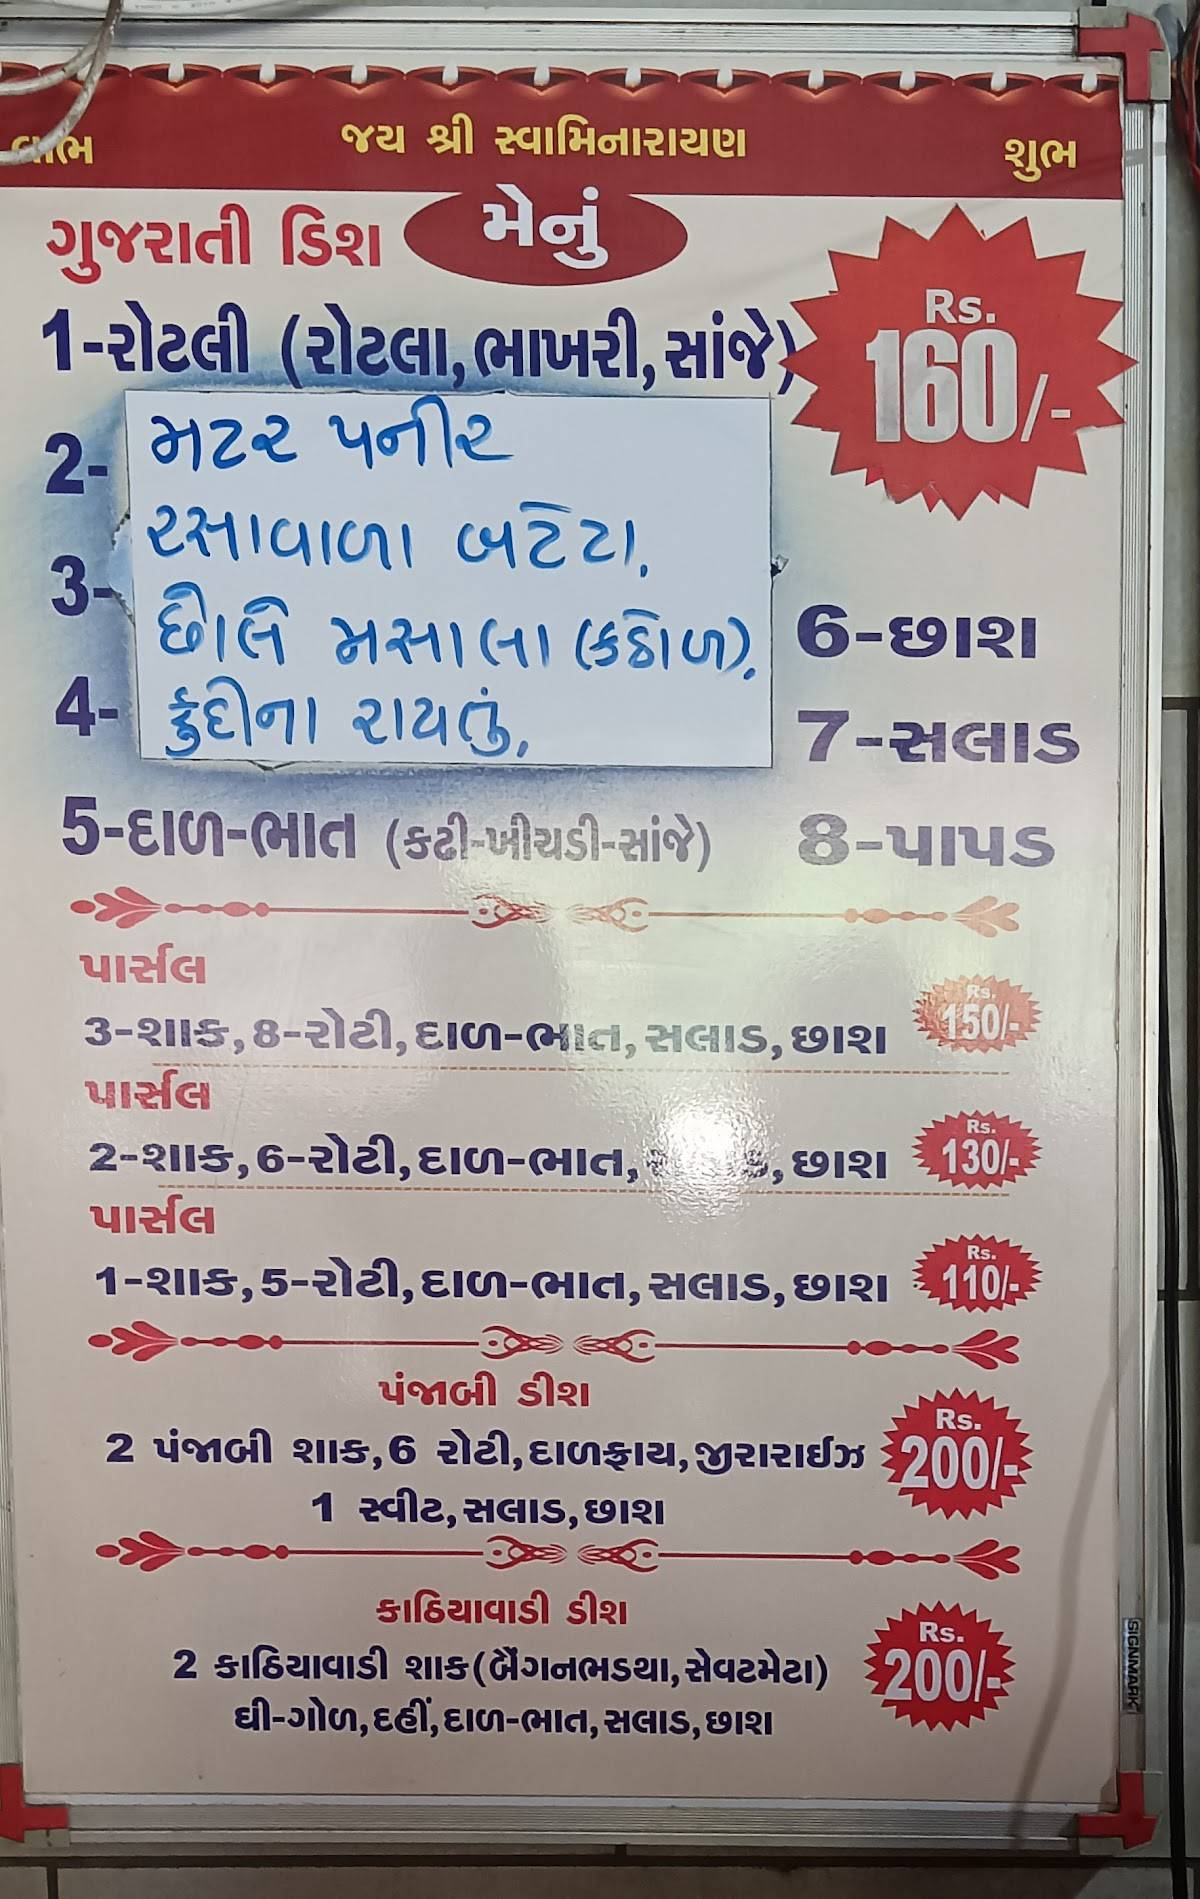 લાભ જય શ્રી સ્વામિનારાયણ શુભ
મેનું
ગુજરાતી ડિશ
Rs. 160/-
1-રોટલી (રોટલા, ભાખરી, સાંજે)
2- મટર પનીર
રસાવાળા બટેટા.
3-
છોલે મસાલા (કઠોળ).
4- ફુદીના રાયતું.
5-દાળ-ભાત (કઢી-ખીચડી-સાંજે)
6-છાશ
7-સલાડ
8-પાપડ
પાર્સલ
3-શાક, 8-રોટી, દાળ-ભાત, સલાડ, છાશ Rs. 150/-
પાર્સલ
2-શાક, 6-રોટી, દાળ-ભાત, છાશ Rs. 130/-
પાર્સલ
1-શાક, 5-રોટી, દાળ-ભાત, સલાડ, છાશ Rs. 110/-
પંજાબી ડીશ
2 પંજાબી શાક, 6 રોટી, દાળફ્રાય, જીરારાઈઝ
1 સ્વીટ, સલાડ, છાશ
Rs. 200/-
કાઠિયાવાડી ડીશ
2 કાઠિયાવાડી શાક (બૈંગનભડથા, સેવટમેટા)
ઘી-ગોળ, દહીં, દાળ-ભાત, સલાડ, છાશ
Rs. 200/-
SIGNMARK